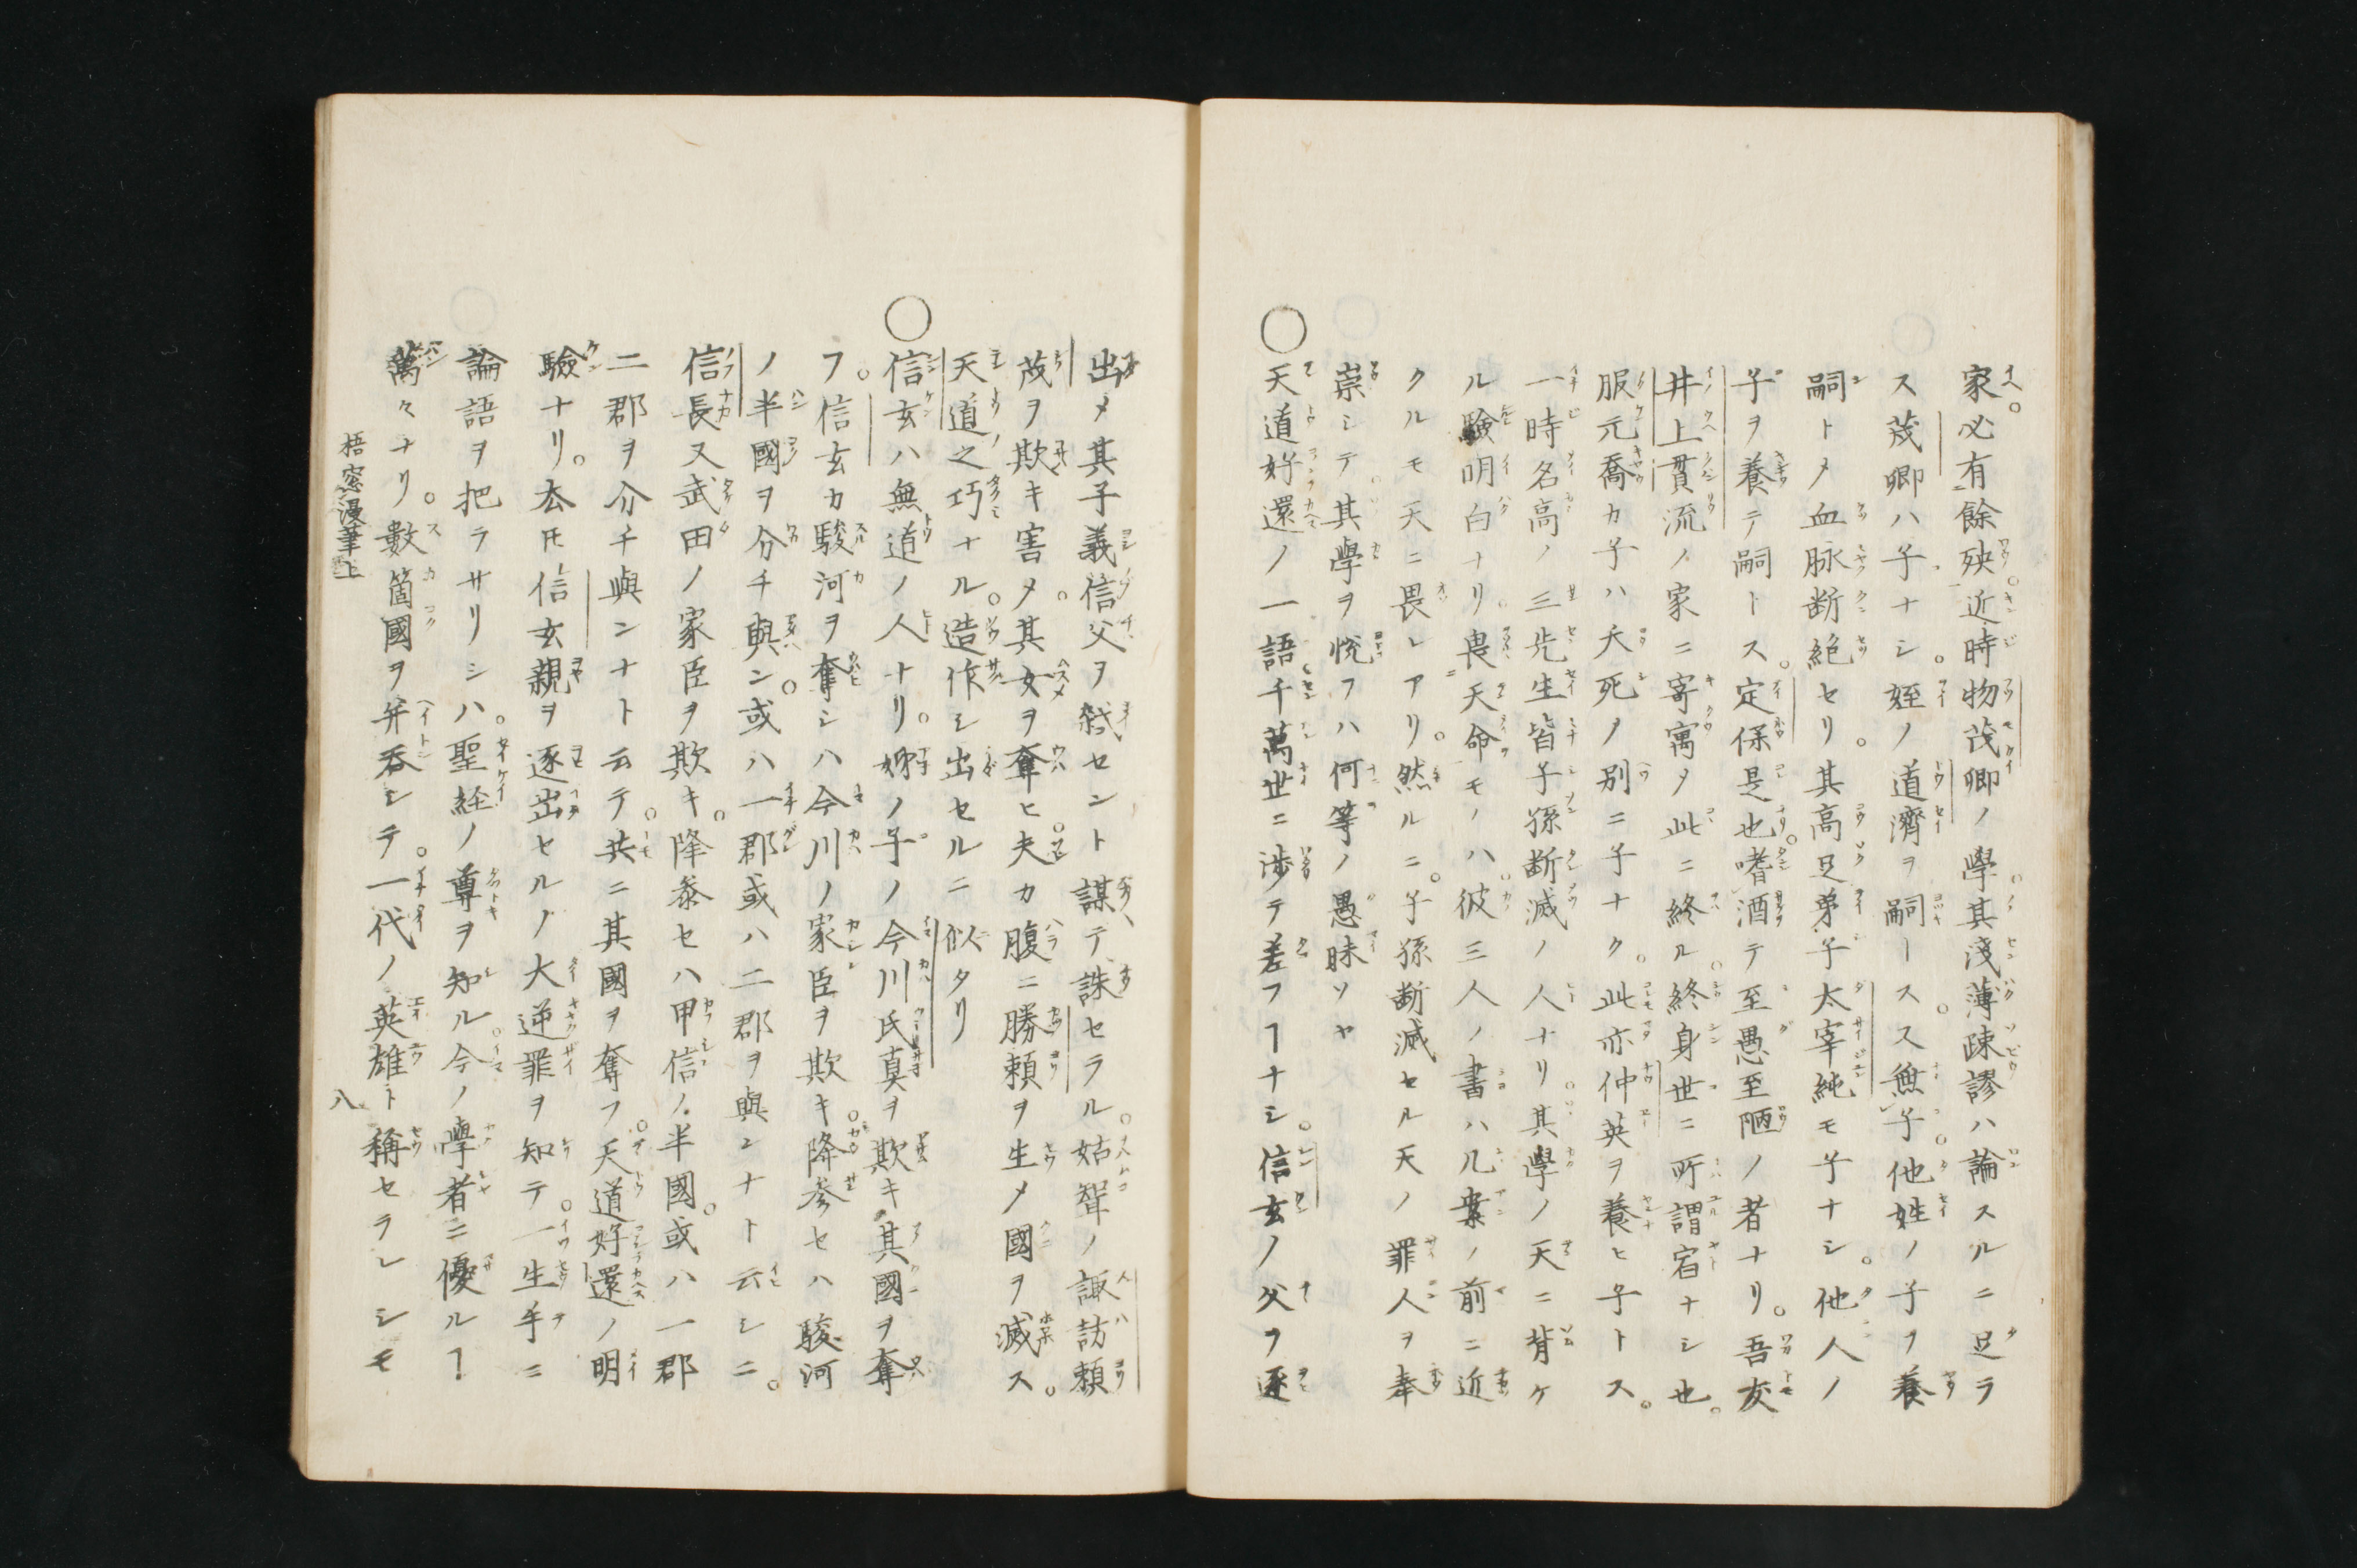 家。必有餘殃。近時物茂卿ノ學。其淺薄疎謬ハ論スルニ足ラ
ス茂卿ハ子ナシ。姪ノ道濟ヲ嗣トス。ス無子。他姓ノ子ヲ養
嗣トメ血脉断絶セリ。其高足弟子太宰純モ子ナシ。他人ノ
子ヲ養テ嗣トス。定保是也。嗜酒テ至愚至陋ノ者ナリ。吾友
井上貫流ノ家ニ寄寓メ此ニ終ル。終身世ニ所謂宿ナシ也。
服元喬カ子ハ夭死メ別ニ子ナク。此亦仲英ヲ養ヒ子トス。
一時名高ノ三先生皆子孫断滅ノ人ナリ。其學ノ天ニ背ケ
ル驗明白ナリ。畏天命モノハ。彼三人ノ書ハ几案ノ前ニ近
クルモ天ニ畏レアリ。然ルニ。子孫断滅セル天ノ罪人ヲ奉
崇シテ。其學ヲ悦フハ何等ノ愚昧ソヤ
○天道好還ノ一語。千萬世ニ渉テ差フヿナシ。信玄ノ父ヲ逐
出メ其子義信父ヲ弑セント謀テ誅セラル。姑聟ノ諏訪頼
茂ヲ欺キ害メ。其女ヲ奪ヒ。夫カ腹ニ勝頼ヲ生メ國ヲ滅ス。
天道之巧ナル。造作シ出セルニ似タリ
○信玄ハ無道ノ人ナリ。姉ノ子ノ今川氏真ヲ欺キ其國ヲ奪
フ。信玄カ駿河ヲ奪シハ今川ノ家臣ヲ欺キ。降参セハ駿河
ノ半國ヲ分チ與ン。或ハ一郡或ハ二郡ヲ與ンナト云シニ。
信長又武田ノ家臣ヲ欺キ。降参セハ甲信ノ半國。或ハ一郡
二郡ヲ分チ與ンナト云テ。共ニ其國ヲ奪フ。天道好還ノ明
驗ナリ。厺𪜈信玄親ヲ逐出セルノ大逆罪ヲ知テ。一生手ニ
論語ヲ把ラサリシハ。聖経ノ尊ヲ知ル。今ノ學者ニ優ルヿ
萬々ナリ。數箇國ヲ并呑シテ。一代ノ英雄ト稱セラレシモ
梧窓漫筆上
八